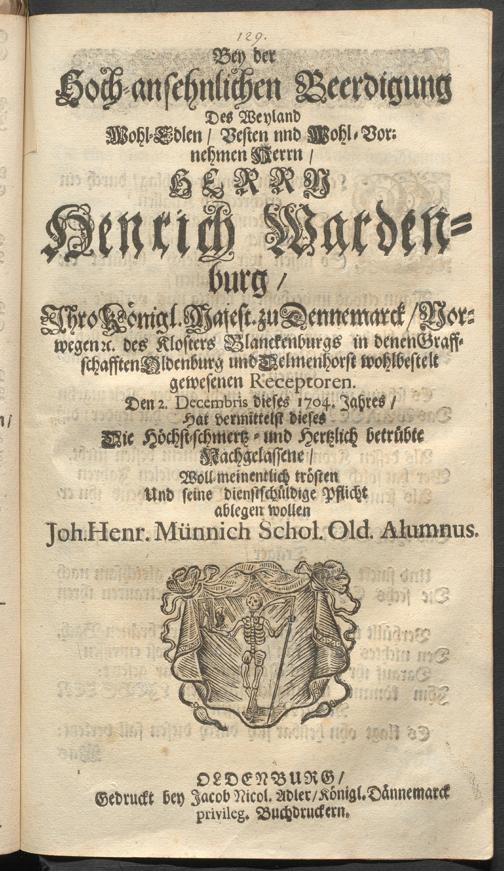 129.
Bey der
Hoch-ansehnlichen Beerdigung
Des Weyland
Wohl-Edlen / Vesten und Wohl-Vor-
nehmen Herrn /
HERRN
Henrich Warden-
burg /
Ihro Königl. Majest. zu Dennemarck / Nor-
wegen ꝛc. des Klosters Blanckenburgs in denen Graff-
schafften Oldenburg und Delmenhorst wohlbestelt
gewesenen Receptoren.
Den 2. Decembris dieses 1704. Jahres /
Hat vermittelst dieses
Die Höchst-schmertz- und Hertzlich betrübte
Nachgelassene /
Woll meinentlich trösten
Und seine dienstschüldige Pflicht
ablegen wollen
Joh. Henr. Münnich Schol. Old. Alumnus.
OLDENBURG /
Gedruckt bey Jacob Nicol. Adler / Königl. Dännemarck
privileg. Buchdruckern.